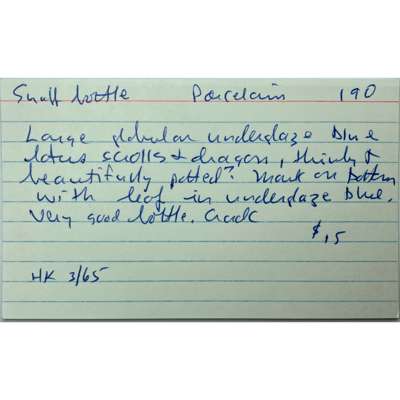 Snuff bottle Porcelain 190
Large globular underglaze blue
lotus scrolls & dragon, thinly &
beautifully potted? Mark on bottom
with leaf in underglaze blue.
Very good bottle. Crack
$15
HK 3/65